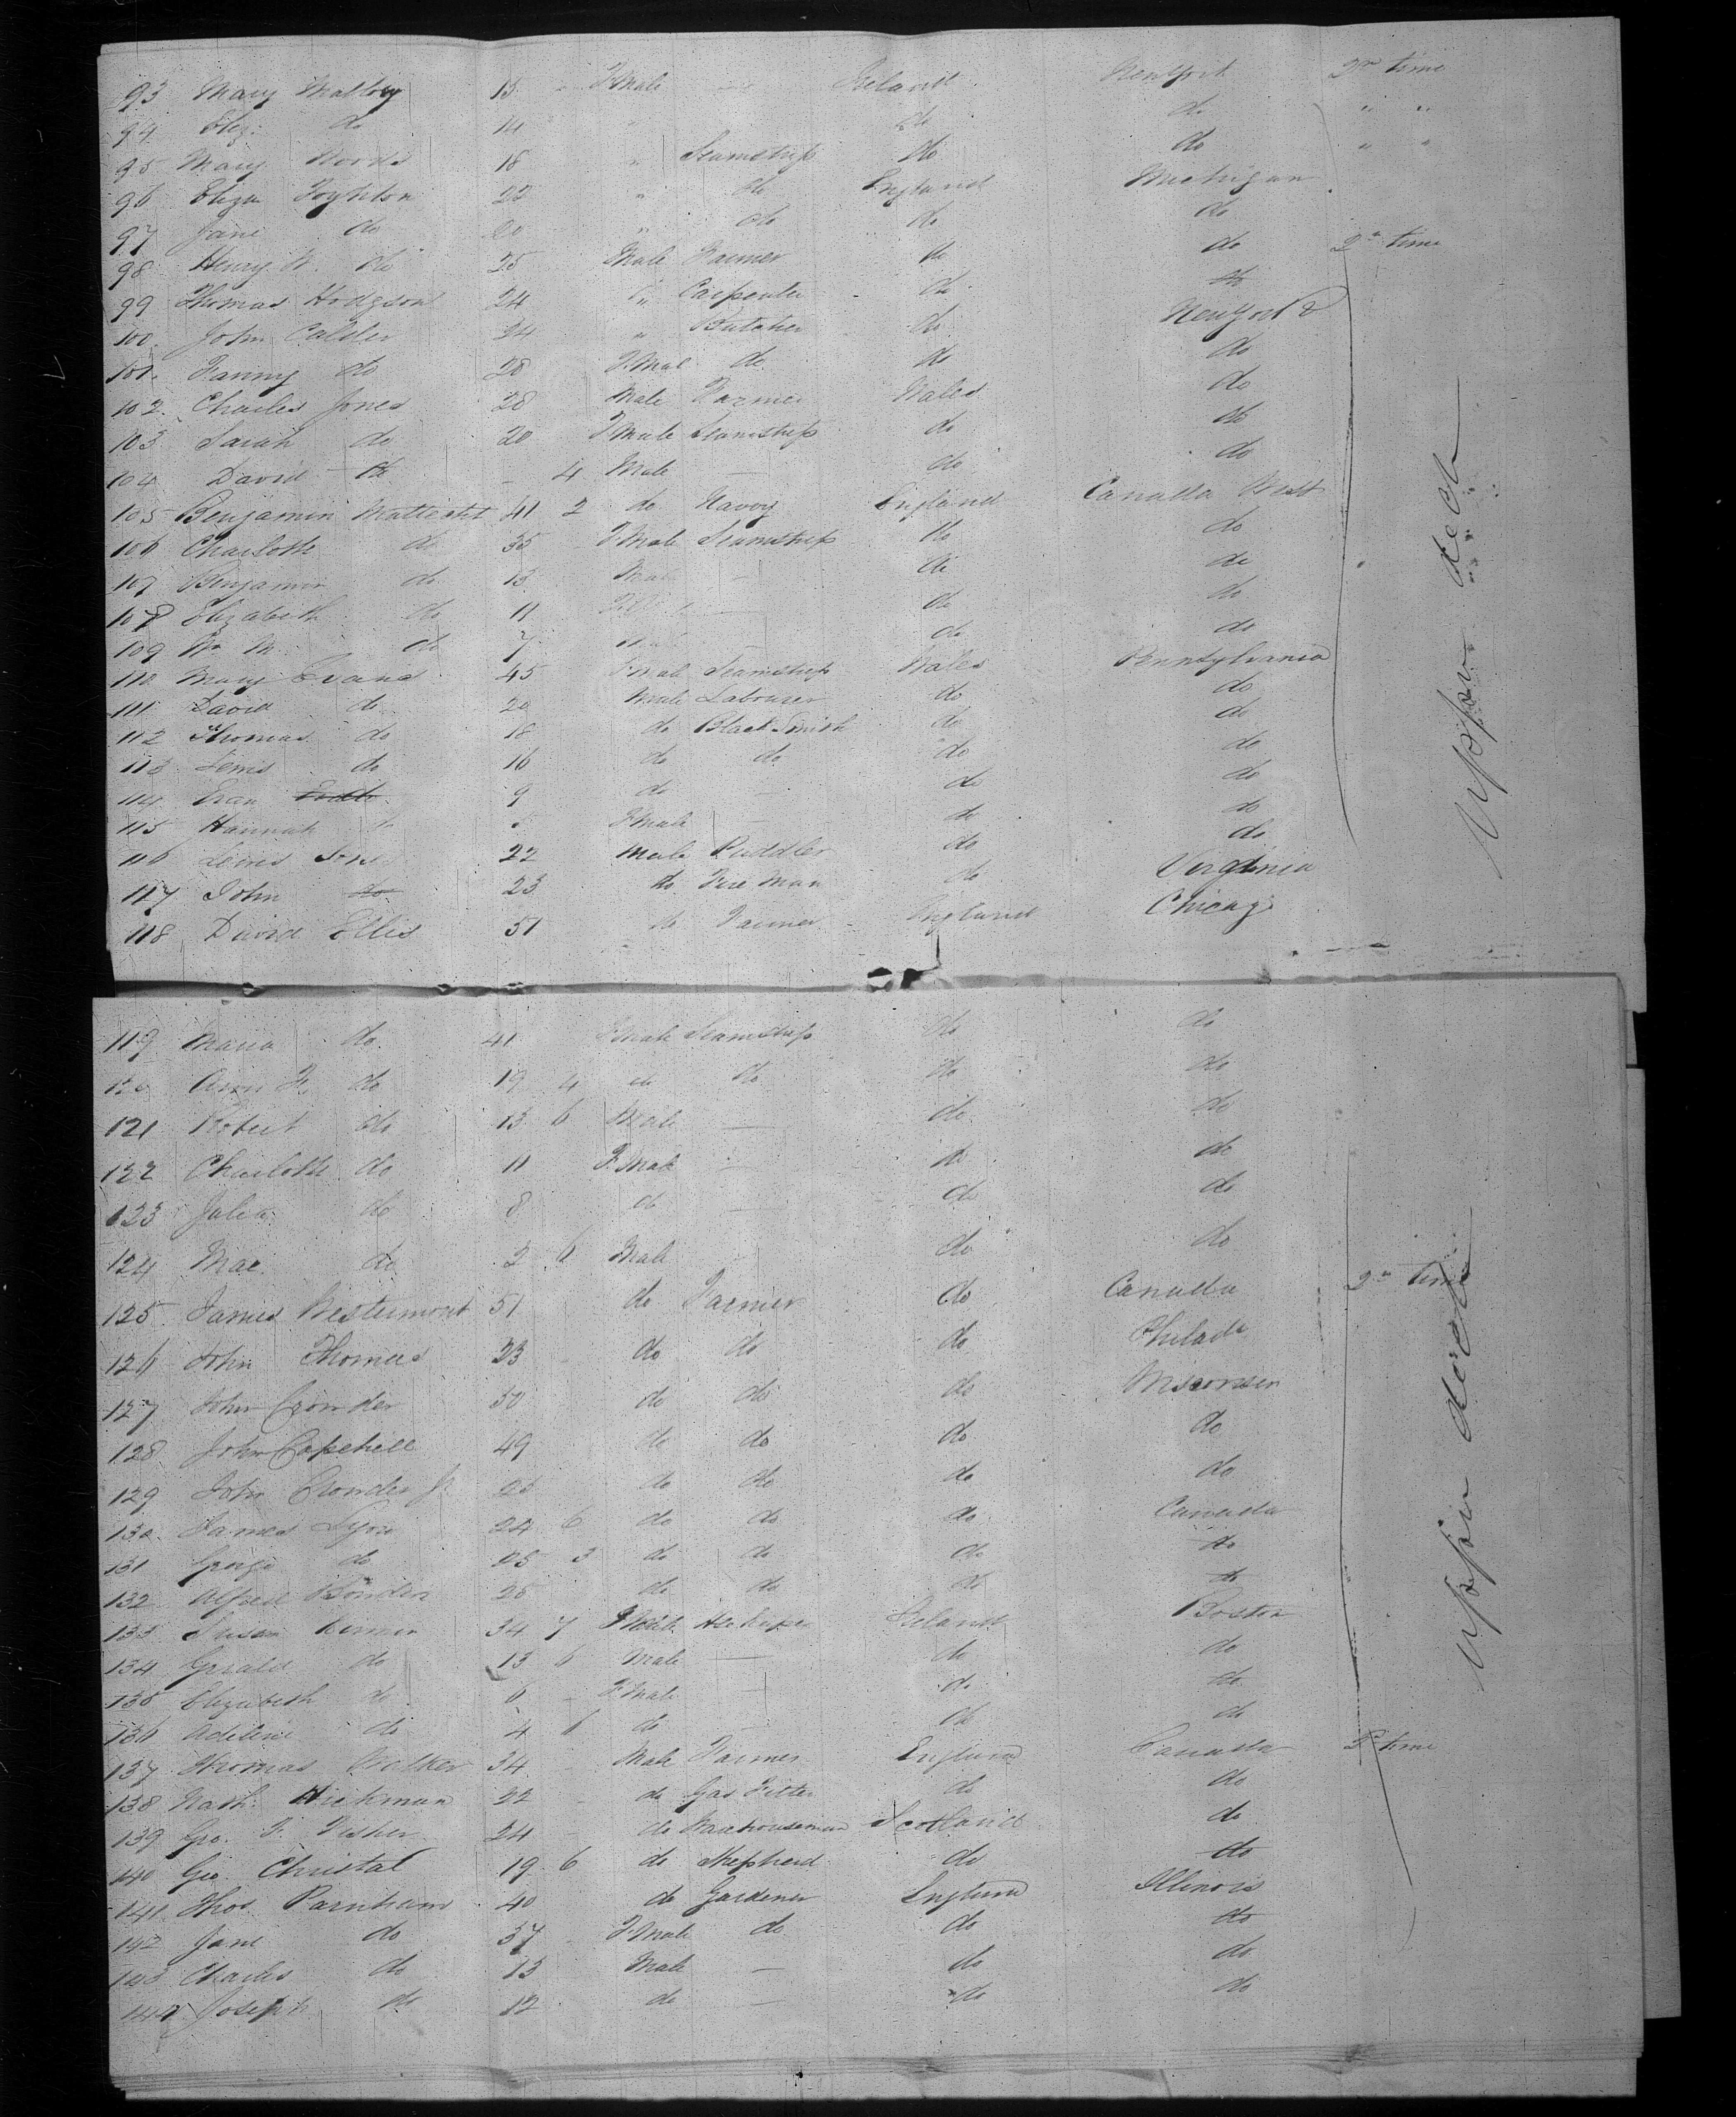 93 Mary Malloy 15 - F.Male - Ireland New York 2nd time
94 Eliz. do 14 " do do " "
95 Mary Woods 18 " Seamstress do do " "
96 Eliza 22 " do England Michigan
97 Jane do 20 " do do do
98 Henry W. do 25 Male Farmer do do 2nd time
99 Thomas Hodgson 24 " Carpenter do do
100 John Calder 34 " Butcher do New York
101 Fanny do 28 F.Male do do do
102 Charles Jones 28 Male Farmer Wales do
103 Sarah do 20 F.Male Seamstress do do
104 David do - 4 Male - do do
105 Benjamin 41 2 do Navvy England Canada West
106 Charlotte do 35 F.Male Seamstress do do
107 Benjamin do 13 Male - do do
108 Elizabeth do 11 F.Male - do do
109 Wm M. do 7 Male do do
110 Mary Evans 45 F.Male Seamstress Wales Pennsylvania
111 David do 20 Male Labourer do do
112 Thomas do 18 do Black Smith do do
113 Lewis do 16 do do do do
114 Evan do 9 do - do do
115 Hannah do 5 F.Male - do do
116 Lewis Jones 22 Male Puddler do do
117 John do 23 do Fire Man do Virginia
118 David Ellis 51 do Farmer England Chicago
Upper deck
119 Maria do 41 F.Male Seamstress do do
120 Ann do 19 4 do do do do
121 Robert do 13 6 Male - do do
122 Charlotte do 11 F.Male - do do
123 Julia do 8 do - do do
124 do 2 6 Male - do do
125 James 51 do Farmer do Canada 2nd time
126 John Thomas 23 do do do Philada
127 John Crowder 50 do do do Wisconsin
128 John Capehill 49 do do do do
129 John Crowder Jr 26 do do do do
130 James Lyon 24 6 do do do Canada
131 George do 25 3 do do do do
132 Alfred 25 do do do do
133 Susan 34 7 F.Male Hse keeper Ireland Boston
134 Gerald do 13 6 Male - do do
135 Elizabeth do 6 - F.Male - do do
136 Adeline do 4 6 do - do do
137 Thomas Walker 34 Male Farmer England Canada 2nd time
138 Nath. Hickman 22 do Gas Fitter do do
139 Geo. F. Fisher 24 do Warehouseman Scotland do
140 Geo. Christal 19 6 do Shepherd do do
141 Thos. Parnham 40 do Gardener England Illinois
142 Jane do 37 F.Male do do do
143 Charles do 13 Male - do do
144 Joseph do 12 do - do do
Upper deck